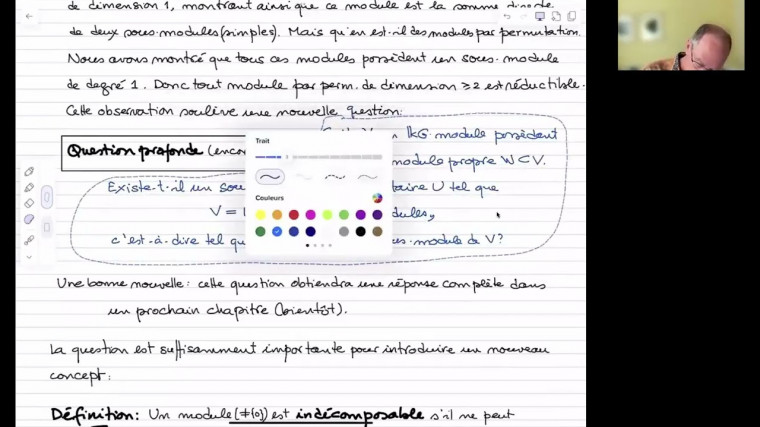 de dimension 1, montrant ainsi que ce module est la somme directe
de deux sous-modules (simples). Mais qu'en est-il des modules par permutation.
Nous avons montré que tous ces modules possèdent un sous-module
de degré 1. Donc tout module par perm. de dimension ≥2 est réductible.
Cette observation soulève une nouvelle question:
Question profonde (encor
kG-module possédant
module propre W⊂V.
Existe-t-il un sou
taire U tel que
V =
dules,
c'est-à-dire tel qu
s-module de V?
Trait
Couleurs
Une bonne nouvelle: cette question obtiendra une réponse complète dans
un prochain chapitre (bientôt).
La question est suffisamment importante pour introduire un nouveau
concept:
Définition: Un module (≠{0}) est indécomposable s'il ne peut